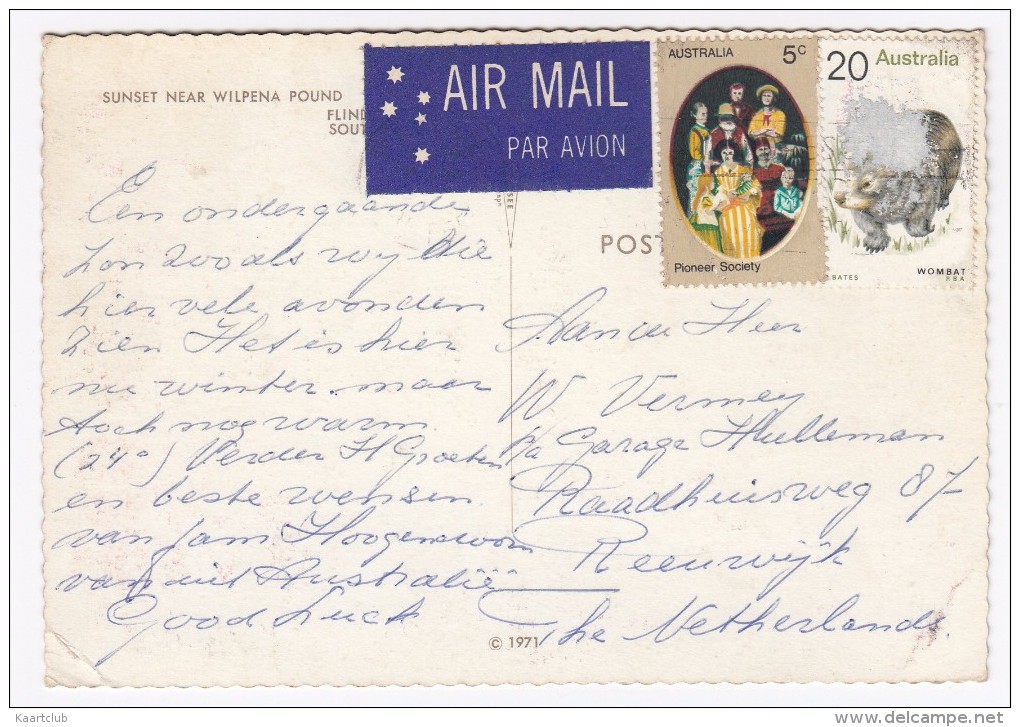 SUNSET NEAR WILPENA POUND
FLIND
SOUT
AIR MAIL
PAR AVION
AUSTRALIA 5c
Pioneer Society
20 Australia
BATES
WOMBAT
RSA
POST
Een ondergaande
zon zooals wij die
hier vele avonden
zien Het is hier
nu winter. maar
toch nog warm.
(24°) Verder H Groeten
en beste wensen
van fam
vanuit Australië
Good Luck
Aan de Heer
W Vermey
p/a Garage Hulleman
Raadhuisweg 87
Reeuwijk
The Netherlands
© 1971
Kaartclub
www.delcampe.net